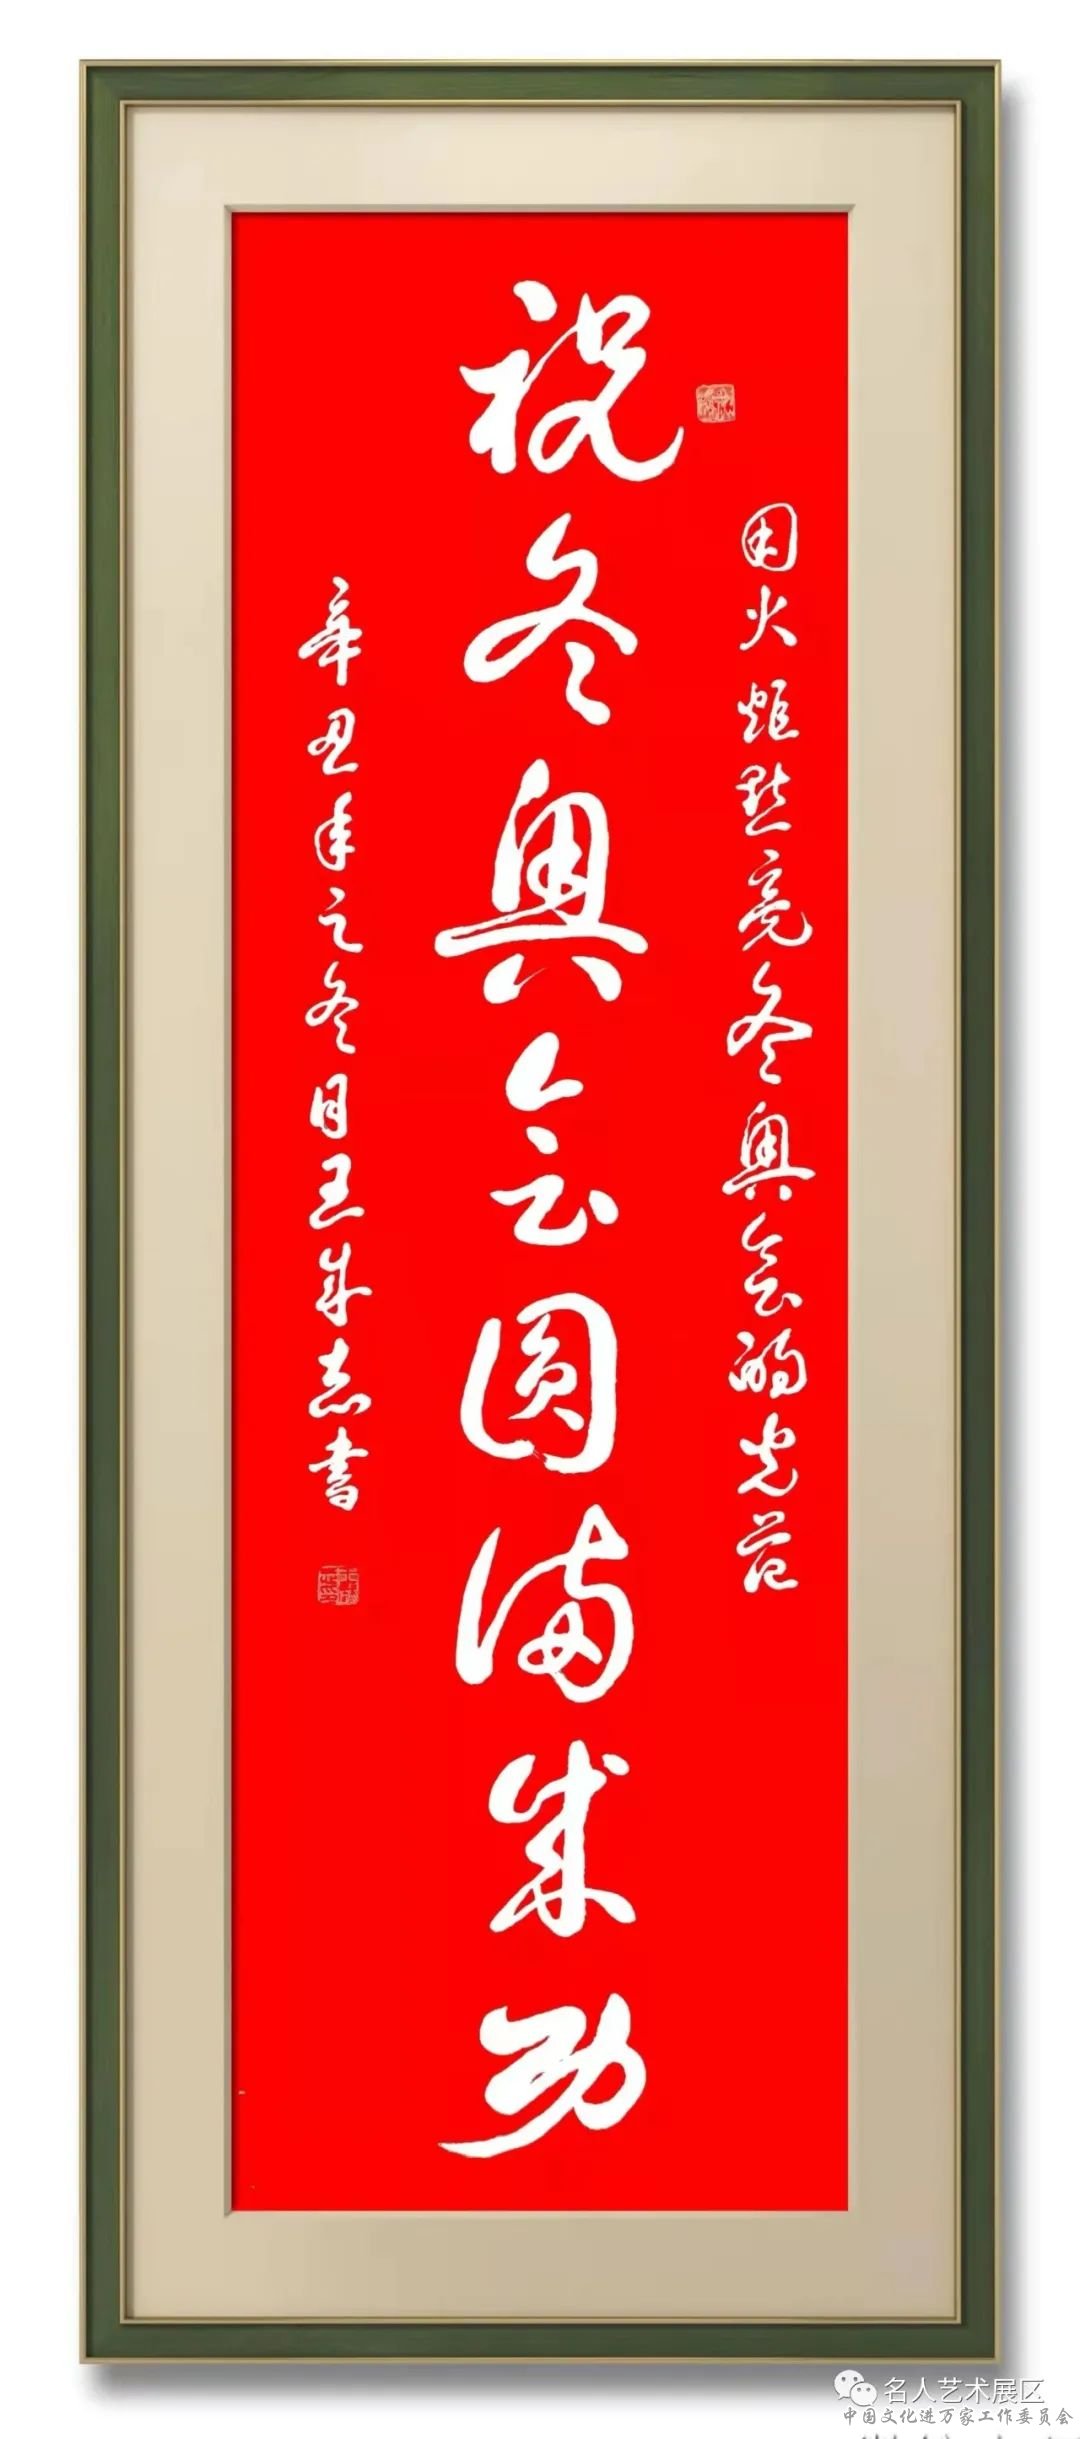 用火炬点亮冬奥会的光芒
祝冬奥会圆满成功
辛丑年之冬月王成志書
名人艺术展区
中国文化进万家工作委员会